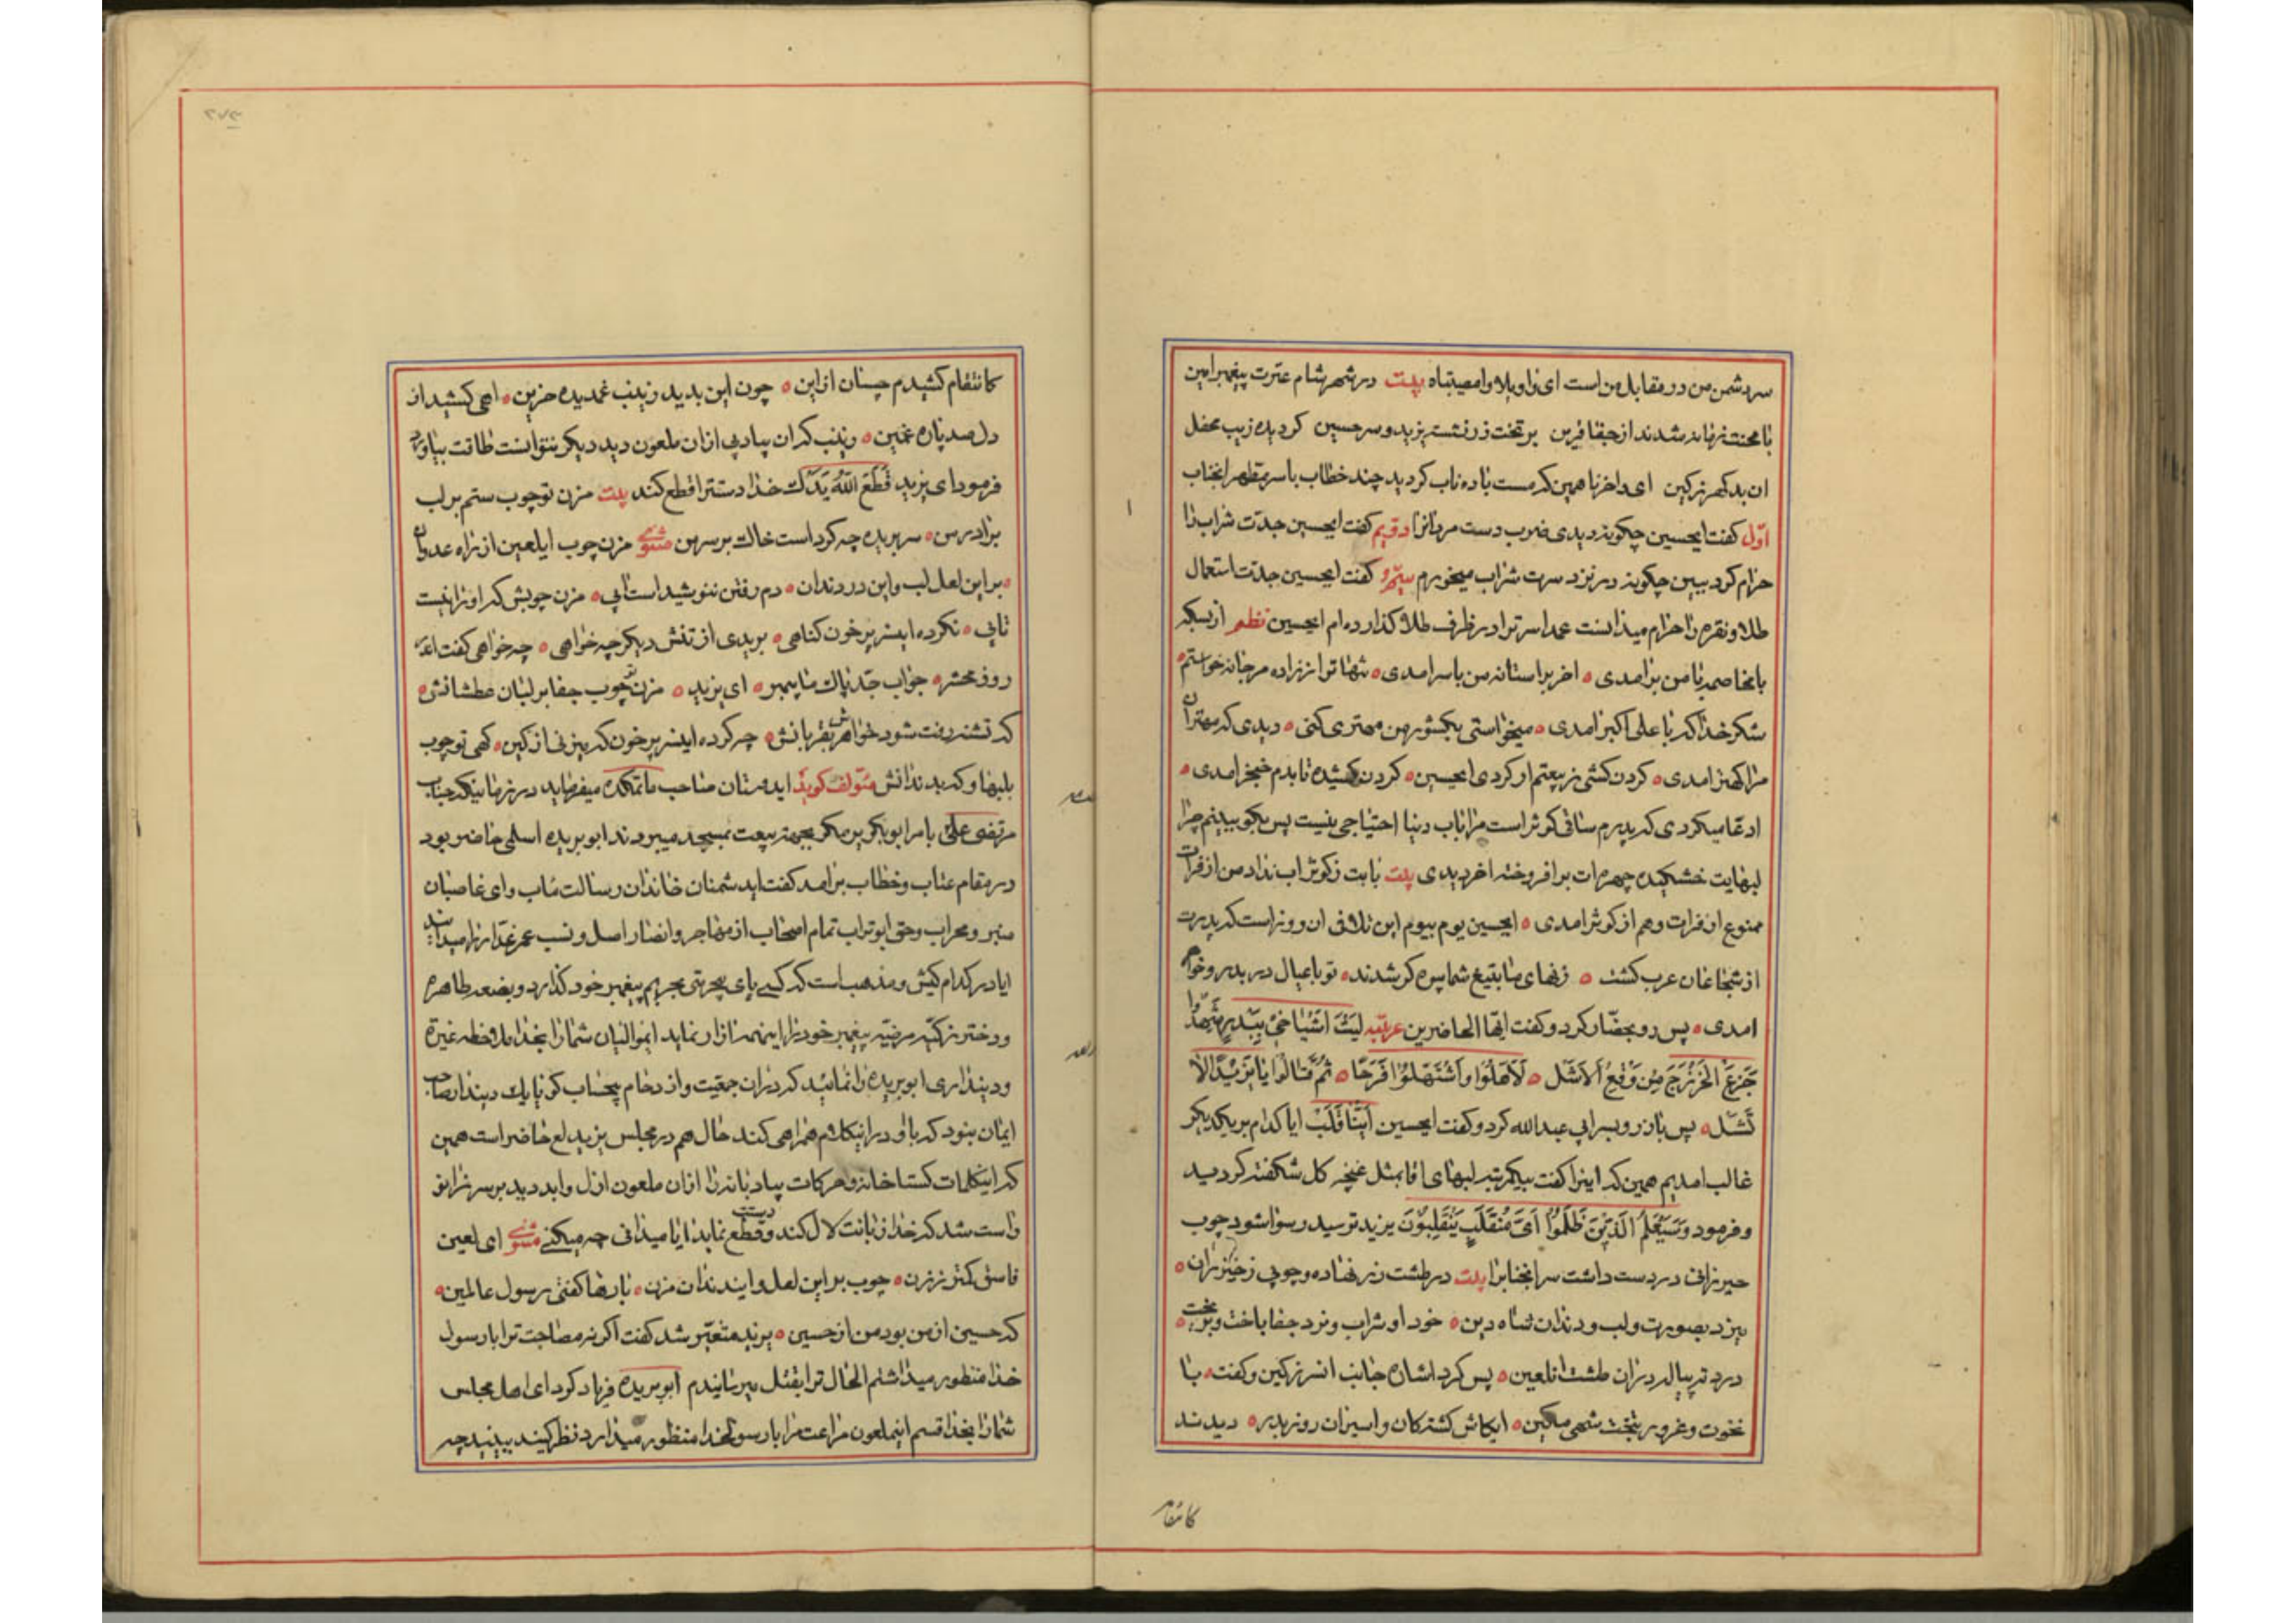 سر دشمن من در مقابل من است ای واویلا وامصیبتاه بیت در شهر شام عترت پیغمبر امین
با محنت زمانه شدند از جفا قرین بر تخت زر نشسته یزید و سر حسین کردیده زیب محفل
ان بد کهر زکین ای داخرنا همین که مست باده ناب کردید چند خطاب با سر مطهر انجناب
اول کفت ایحسین چکونه دیدی ضرب دست مردانرا دویم کفت ایحسین جدت شراب را
حرام کرد ببین چکونه در نزد سرت شراب میخورم سیم کفت ایحسین جدت استعمال
طلا و نقره را حرام میدانست عمدا سر ترا در ظرف طلا کذارده ام ایحسین نظم از بسکه
با مخاصمه با من برامدی اخر بر استانه من با سر امدی تنها ترا ز زاده مرجانه خواستم
شکر خدا که با علی اکبر امدی میخواستی بکشور من مهتری کنی دیدی که مهتران
مرا کهتر امدی کردن کشی ز بیعتم ار کردی ایحسین کردن کشیده تا بدم خنجر امدی
ادعا میکردی که پدرم ساقی کوثر است مرا باب دنیا احتیاجی نیست پس بکو ببینم چرا
لبهایت خشکیده چهره ات برافروخته اخر دیدی بیت بابت ز کوثر اب نداد من از فرات
ممنوع از فرات و هم از کوثر امدی ایحسین یوم بیوم این تلافی ان روز است که پدرت
از شجاعان عرب کشت زنهای ما بتیغ شما بی پسر شدند تو با عیال در بدر و خواهر
امدی پس رو بحضار کرد و کفت ایها الحاضرین عربیه لیت اشیاخی ببدر شهدوا
جزع الخزرج من وقع الاسل لاهلوا واستهلوا فرحا ثم قالوا یا یزید لا
تشل پس باز رو بسر ابی عبدالله کرد و کفت ایحسین اینا قلب ایا کدام بر یکدیکر
غالب امدیم همین که اینرا کفت بیکمرتبه لبهای اقا بمثل غنچه کل شکفته کردید
و فرمود وسیعلم الذین ظلموا ای منقلب ینقلبون یزید ترسید رسوا شود چوب
خیزرانی در دست داشت سر انجنابرا بیت در طشت زر نهاده و چوبی ز خیزران
میزد بصورت و لب و دندان شاه دین خود او شراب و نرد جفا باخت و بریخت
درد ته پیاله در ان طشت انلعین پس کرد اشاره جانب انسر زکین و کفت با
نخوت و غرور بتخت شهی مکین ایکاش کشتکان و اسیران روز بدر دیدند
کانتقام
کانتقام کشیدم چسان از این چون این بدید زینب غمدیده حزین اهی کشید از
دل صد پاره غمین زینب که ان بی ادبی از ان ملعون دید دیکر نتوانست طاقت بیاورد
فرمود ای یزید قطع الله یدک خدا دستترا قطع کند بیت مزن تو چوب ستم بر لب
برادر من سر بریده چه کرد است خاک بر سر من مثنوی مزن چوب ایلعین از راه عدوان
بر این لعل لب و این در دندان دم رفتن ننوشید است ابی مزن چوبش که او را نیست
تابی نکرده اینسر پر خون کناهی بریدی از تنش دیکر چه خواهی چه خواهی کفت
روز محشر جواب جد پاک ما پیمبر ای یزید مزن تو چوب جفا بر لبان عطشانش
که تشنه رفت شود خواهرش بقربانش چه کرده اینسر پر خون که میزنی از کین کهی تو چوب
بلبها و که بدندانش مؤلف کوید ایدوستان صاحب ماتمکده میفرماید در زمانیکه جناب
مرتضی علی با مر ابوبکر پر مکر بجهة بیعت بمسجد میبردند ابو بریده اسلمی حاضر بود
در مقام عتاب و خطاب برامد کفت اید شمنان خاندان رسالت ماب و ای غاصبان
منبر و محراب و حق ابوتراب تمام اصحاب از مهاجر و انصار اصل و نسب عمر غدار را میدانند
ایا در کدام کیش و مذهب است که کسی پای بیحرمتی بحریم پیغمبر خود کذارد و بضعه طاهره
و دختر زکیه مرضیه پیغمبر خود را اینهمه ازار نماید ایموالیان شما را بخدا ملاحظه غیرة
و دینداری ابو بریده را نمائید که در ان جمعیت و ازدحام بیحساب کو یا یک دیندار صاحب
ایمان نبود که با او در اینکلام همراهی کند حال هم در مجلس یزید لع حاضر است همین
که اینکلمات کستاخانه و حرکات بی ادبانه را از ان ملعون ازل و ابد دید بر سر زانو
راست شد که خدا زبانت لال کند و دستت قطع نماید ایا میدانی چه میکنی مثنوی ای لعین
فاسق کمتر ز زن چوب بر این لعل و ایندندان مزن بارها کفتی رسول عالمین
که حسین از من بود من از حسین یزید متغیر شد کفت اکر نه مصاحبت ترا با رسول
خدا منظور میداشتم الحال ترا بقتل میرسانیدم ابو بریده فریاد کرد ای اهل مجلس
شما را بخدا قسم اینملعون مراعت مرا با رسولخدا منظور میدارد نظر کنید ببینید چه